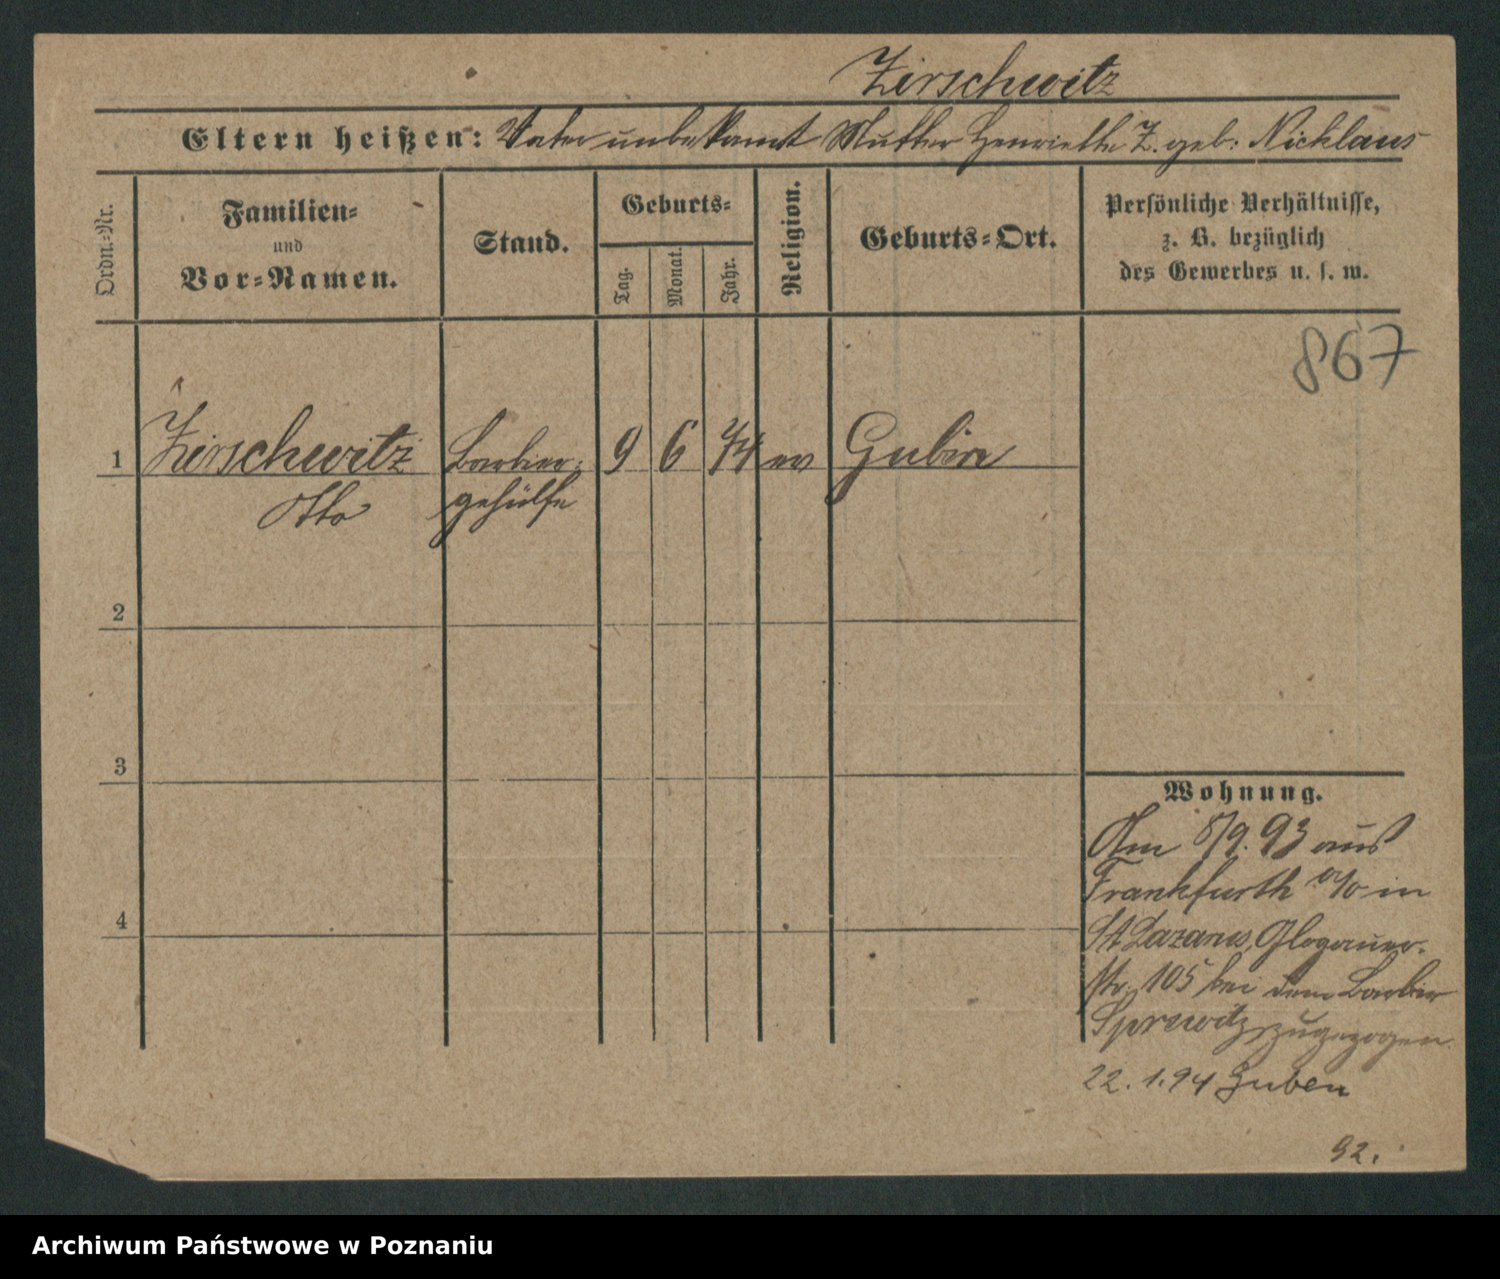 Zirschwitz
Eltern heißen: Vater unbekannt Mutter Henriette Z. geb: Nicklaus
Ordn.-Nr.
Familien-
und
Vor-Namen.
Stand.
Geburts-
Tag.
Monat.
Jahr.
Religion.
Geburts-Ort.
Persönliche Verhältnisse,
z. B. bezüglich
des Gewerbes u. s. w.
867
1 Zirschwitz Barbier- 9 6 74 ev Gubin
Otto gehülfe
2
3
4
Wohnung.
Am 8/9. 93 aus
Frankfurth a/o in
St Lazarus, Glogauer-
str. 105 bei dem Barbier
zugezogen.
22. 1. 94 Guben
92.
Archiwum Państwowe w Poznaniu